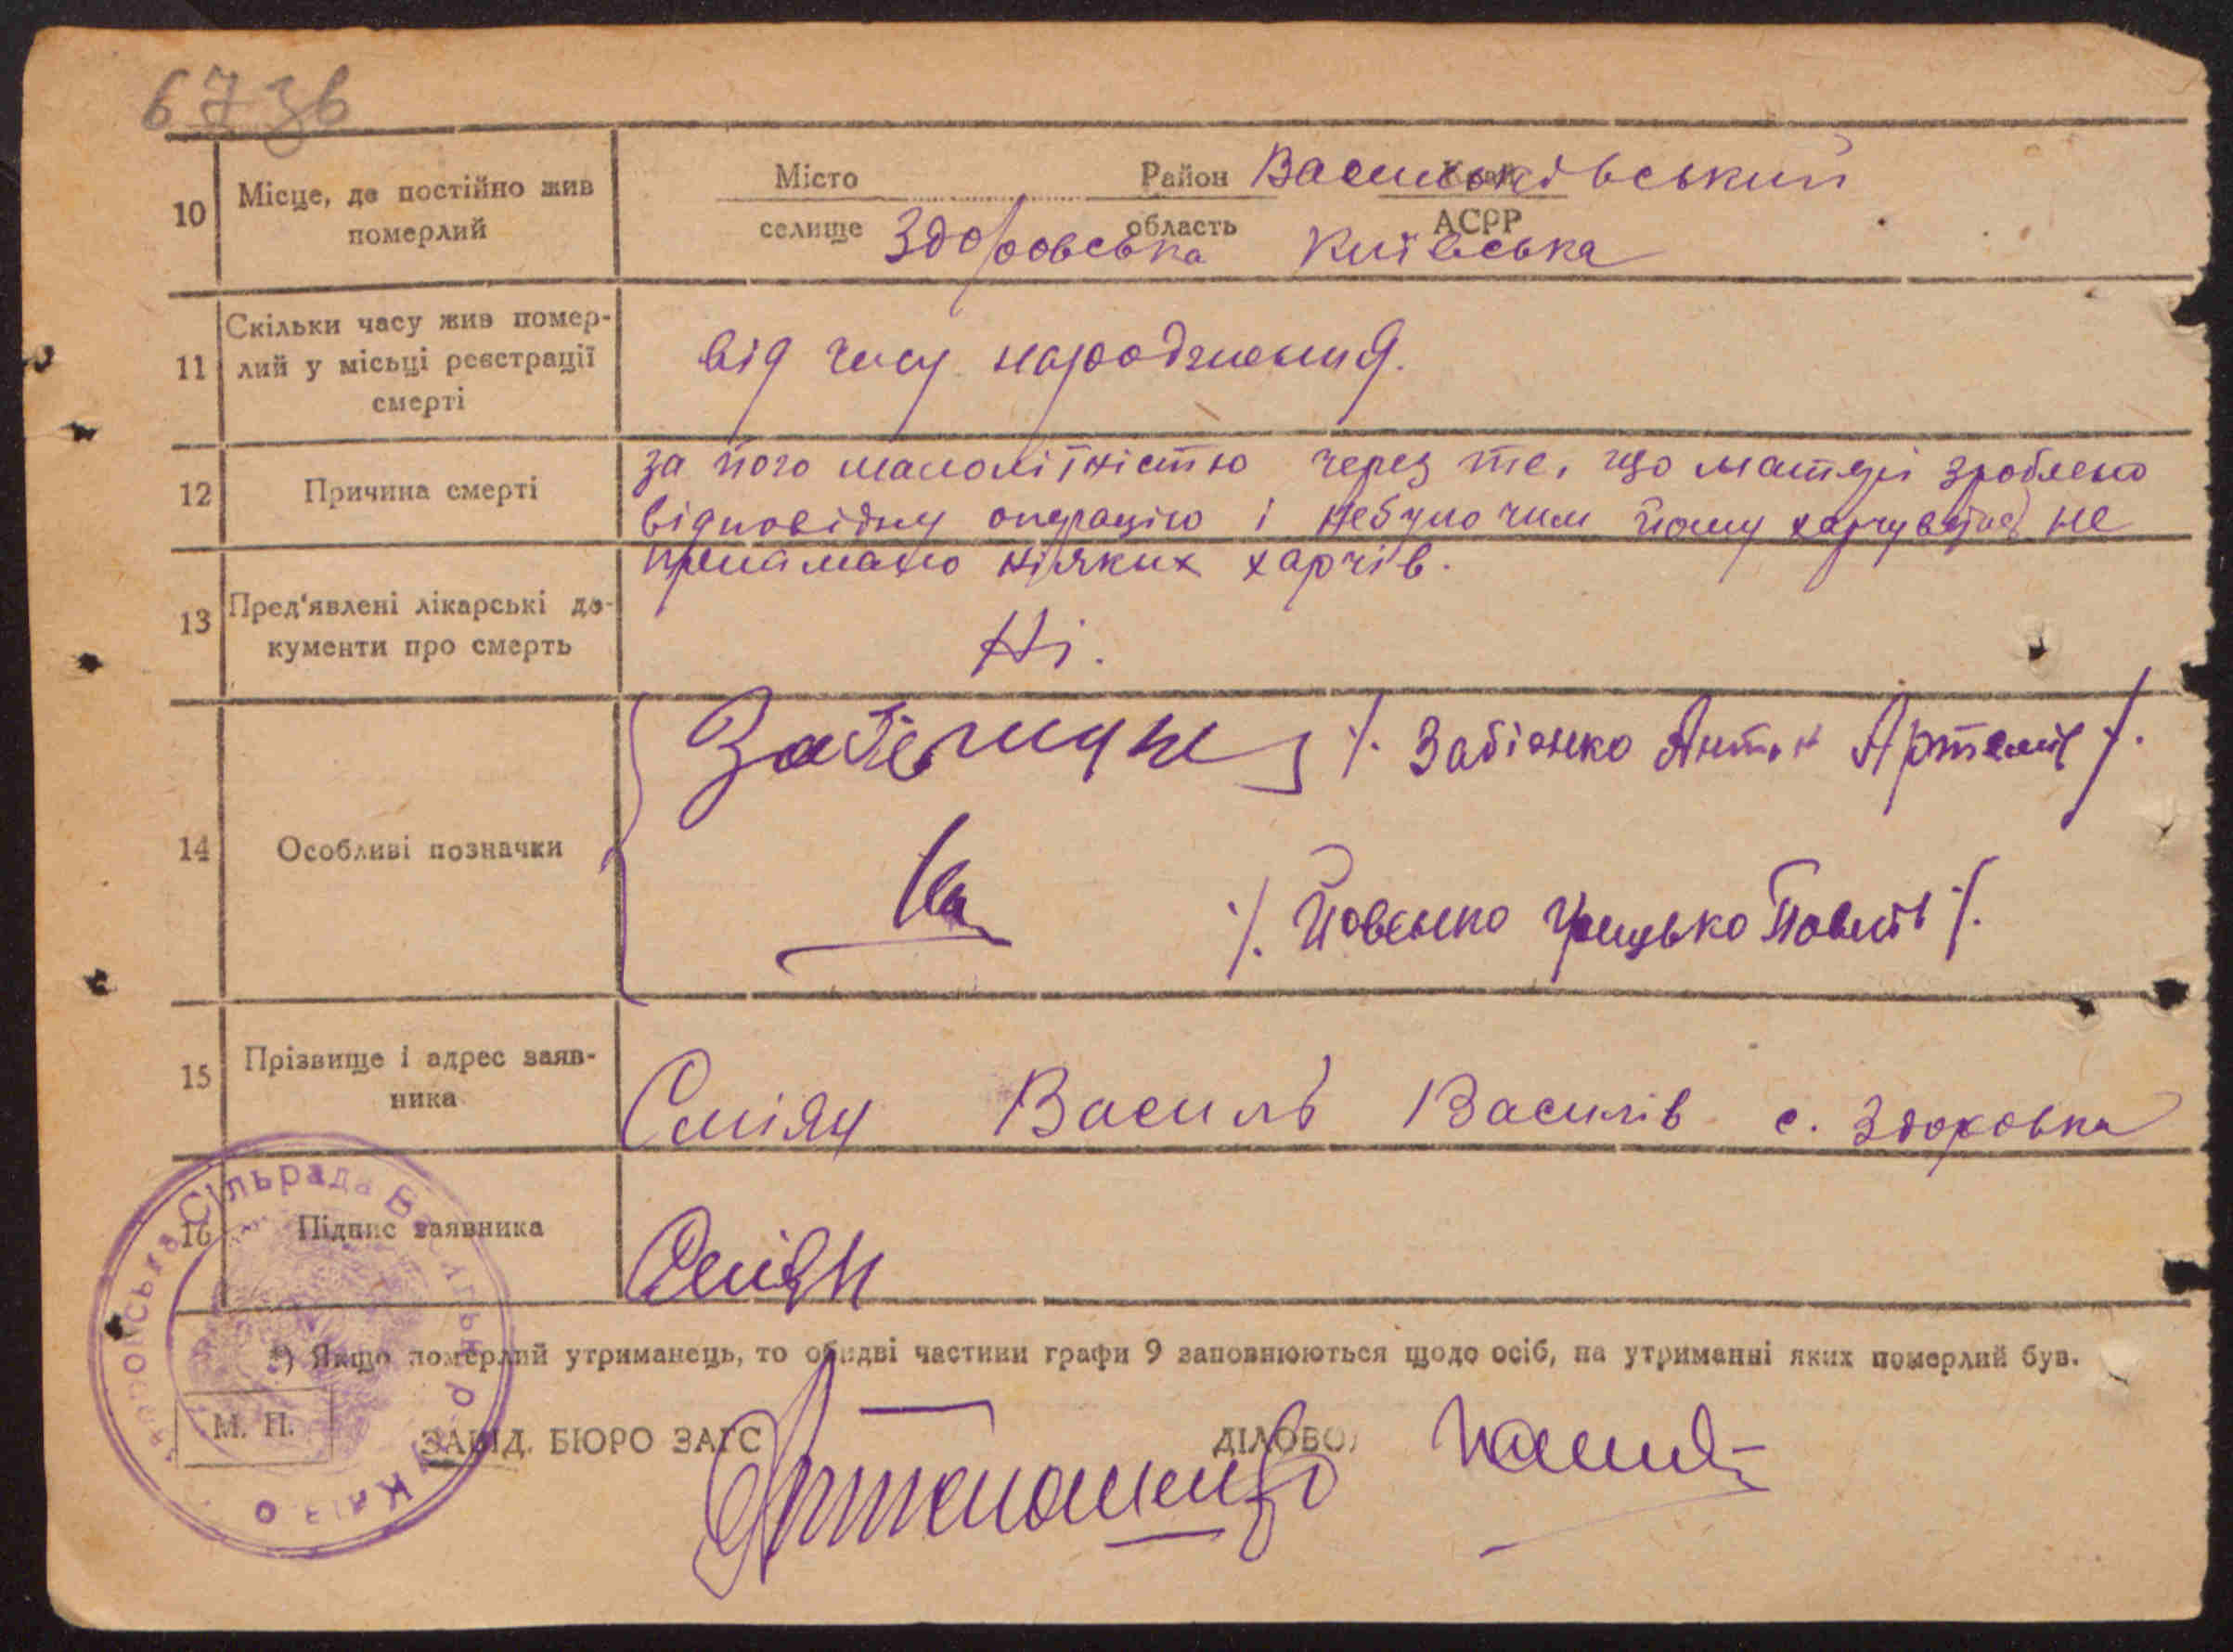 673в
10 Місце, де постійно жив померлий
Місто Район Васильківський Край
селище Здоровська область Київська АСРР
11 Скільки часу жив померлий у місьці реєстрації смерті
від часу народження.
12 Причина смерті
за його малолітністю через те, що матері зроблено
відповідну операцію і небуло чим йому харчуватись не
приймало ніяких харчів.
13 Пред'явлені лікарські документи про смерть
Ні.
14 Особливі позначки
/. Забіянко Антон Артемів /.
/. Йовенко Грицько Павлів /.
15 Прізвище і адрес заявника
Сміян Василь Василів с. Здоровка
16 Підпис заявника
Сміян
*) Якщо померлий утриманець, то обидві частини графи 9 заповнюються щодо осіб, на утриманні яких померлий був.
М. П.
ЗАВІД. БЮРО ЗАГС
ДІЛОВОД
Сільрада